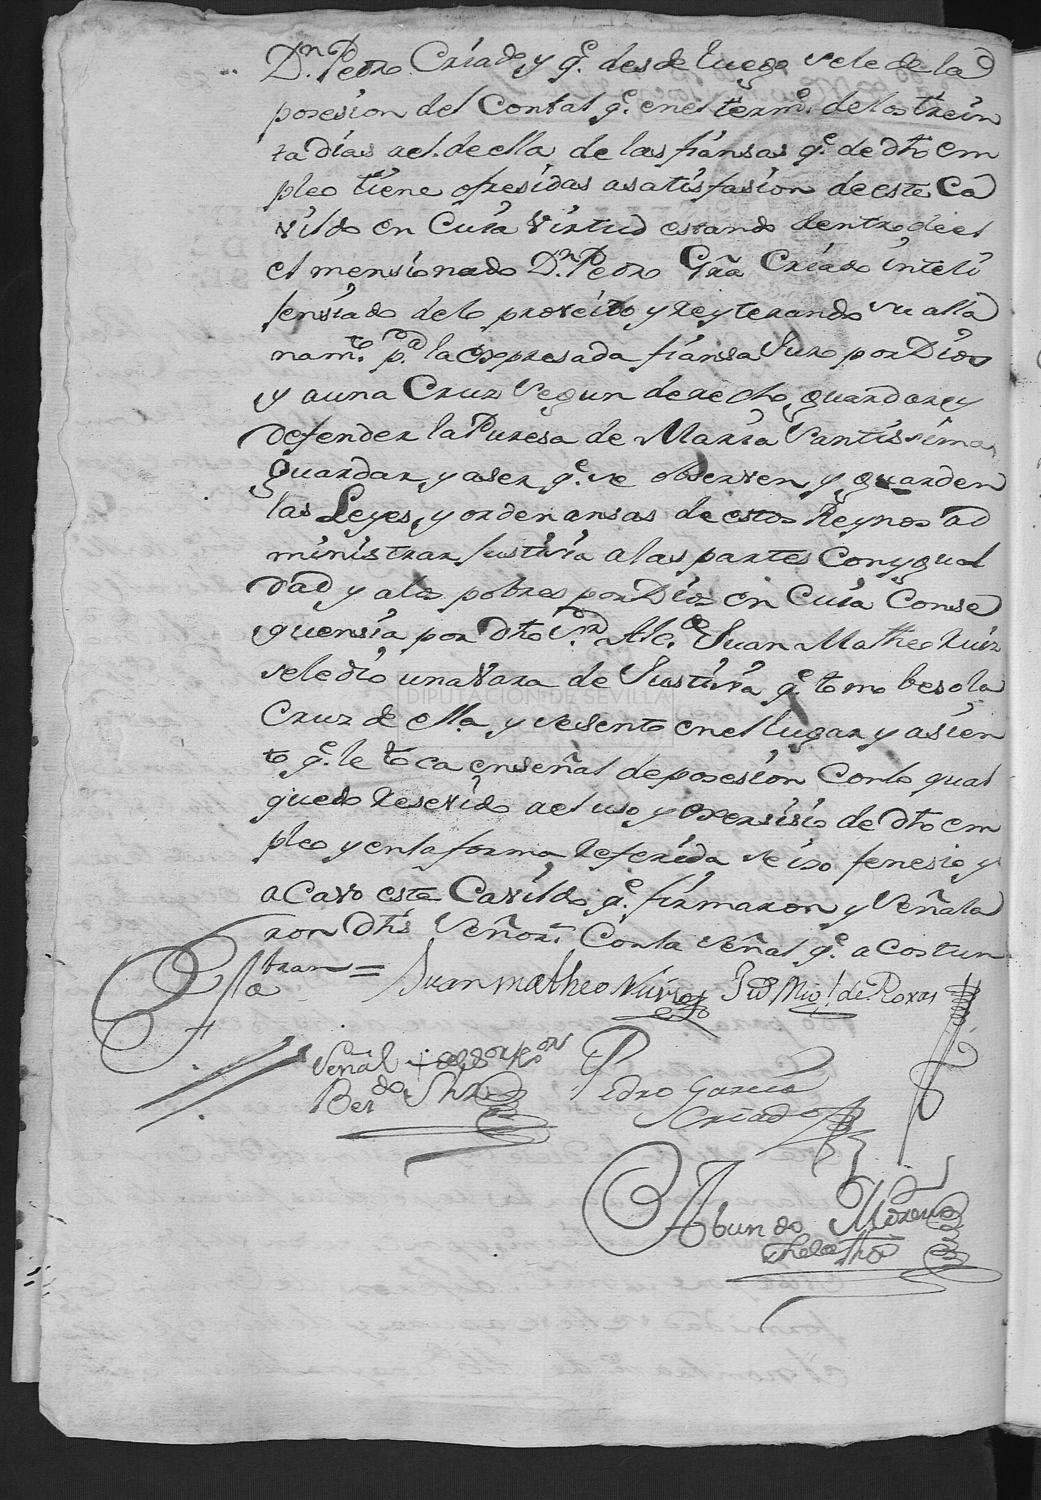 Dn. Pedro Criado, y qe. desde luego se le de la
posesion del Con tal qe. en el termo. de los trein
ta dias se le de ella de las fiansas qe. de dho em
pleo tiene ofresidas a satisfasion de este Ca
vildo en Cuia Virtud estando dentro de el
el mensionado Dn. Pedro Gra Criado inteli
fensiado de lo proveido y Reyterando su alla
namto. pa. la expresada fiansa Juro por Dios
y a una Cruz segun derecho, guardar y
defender la Puresa de Maria Santissima
guardar, y aser qe. se observen y guarden
las Leyes, y ordenansas de estos Reynos ad
ministrar Justisia a las partes Con ygual
dad y a los pobres por Dios en Cuia Conse
quensia por dho Sr. Alce. Juan Matheo Ruiz
se le dio una Vara de Justisia qe. tomo beso la
Cruz de ella, y se sento en el lugar y asien
to qe. le toca en señal de posesion Con lo qual
quedo Resevido a el uso y exersisio de dho em
pleo y en la forma Referida se iso fenesio, y
acavo este Cavildo qe. firmaron y señala
ron dhs Señors. Con la señal qe. acostun
bran =
Juan matheo Ruiz Miol. de Roxas
Señal +
Pedro Garcia
Criado
Abundo Moreno